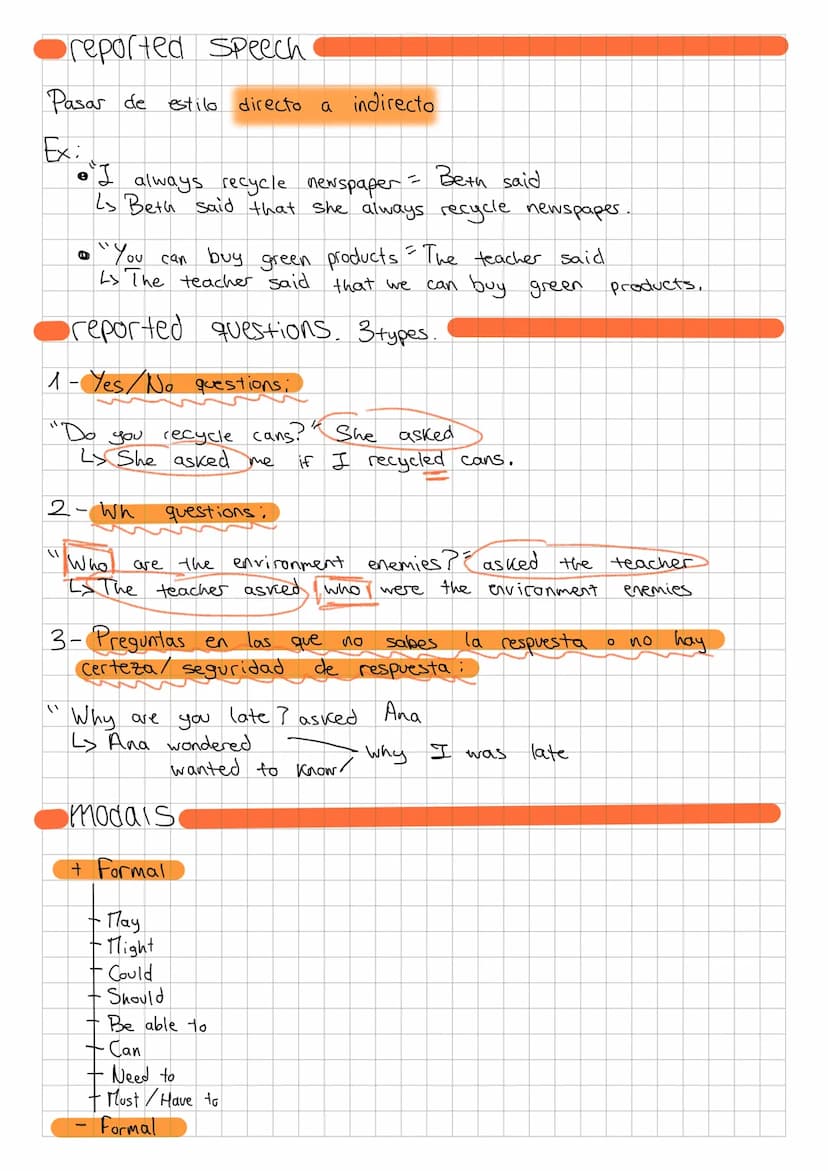 reported speech
Pasar de estilo directo a indirecto
Ex:
• "I always recycle newspaper" Beth said
↳ Beth said that she always recycle newspaper.
• "You can buy green products" The teacher said
↳ The teacher said that we can buy green products.
reported questions. 3 types.
1 - Yes/No questions:
"Do you recycle cans?" She asked
↳ She asked me if I recycled cans.
2 - Wh questions:
"Who are the environment enemies?" asked the teacher
↳ The teacher asked who were the environment enemies
3 - Preguntas en las que no sabes la respuesta o no hay
certeza/ seguridad de respuesta:
" Why are you late? asked Ana
↳ Ana wondered
why I was late
wanted to know
modals
+ Formal
May
Might
Could
Should
Be able to
Can
Need to
Must / Have to
- Formal